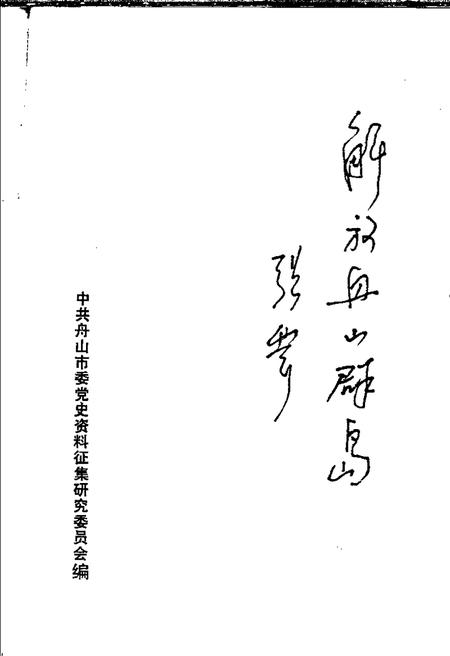 解放舟山群岛
张爱萍
中共舟山市委党史资料征集研究委员会编